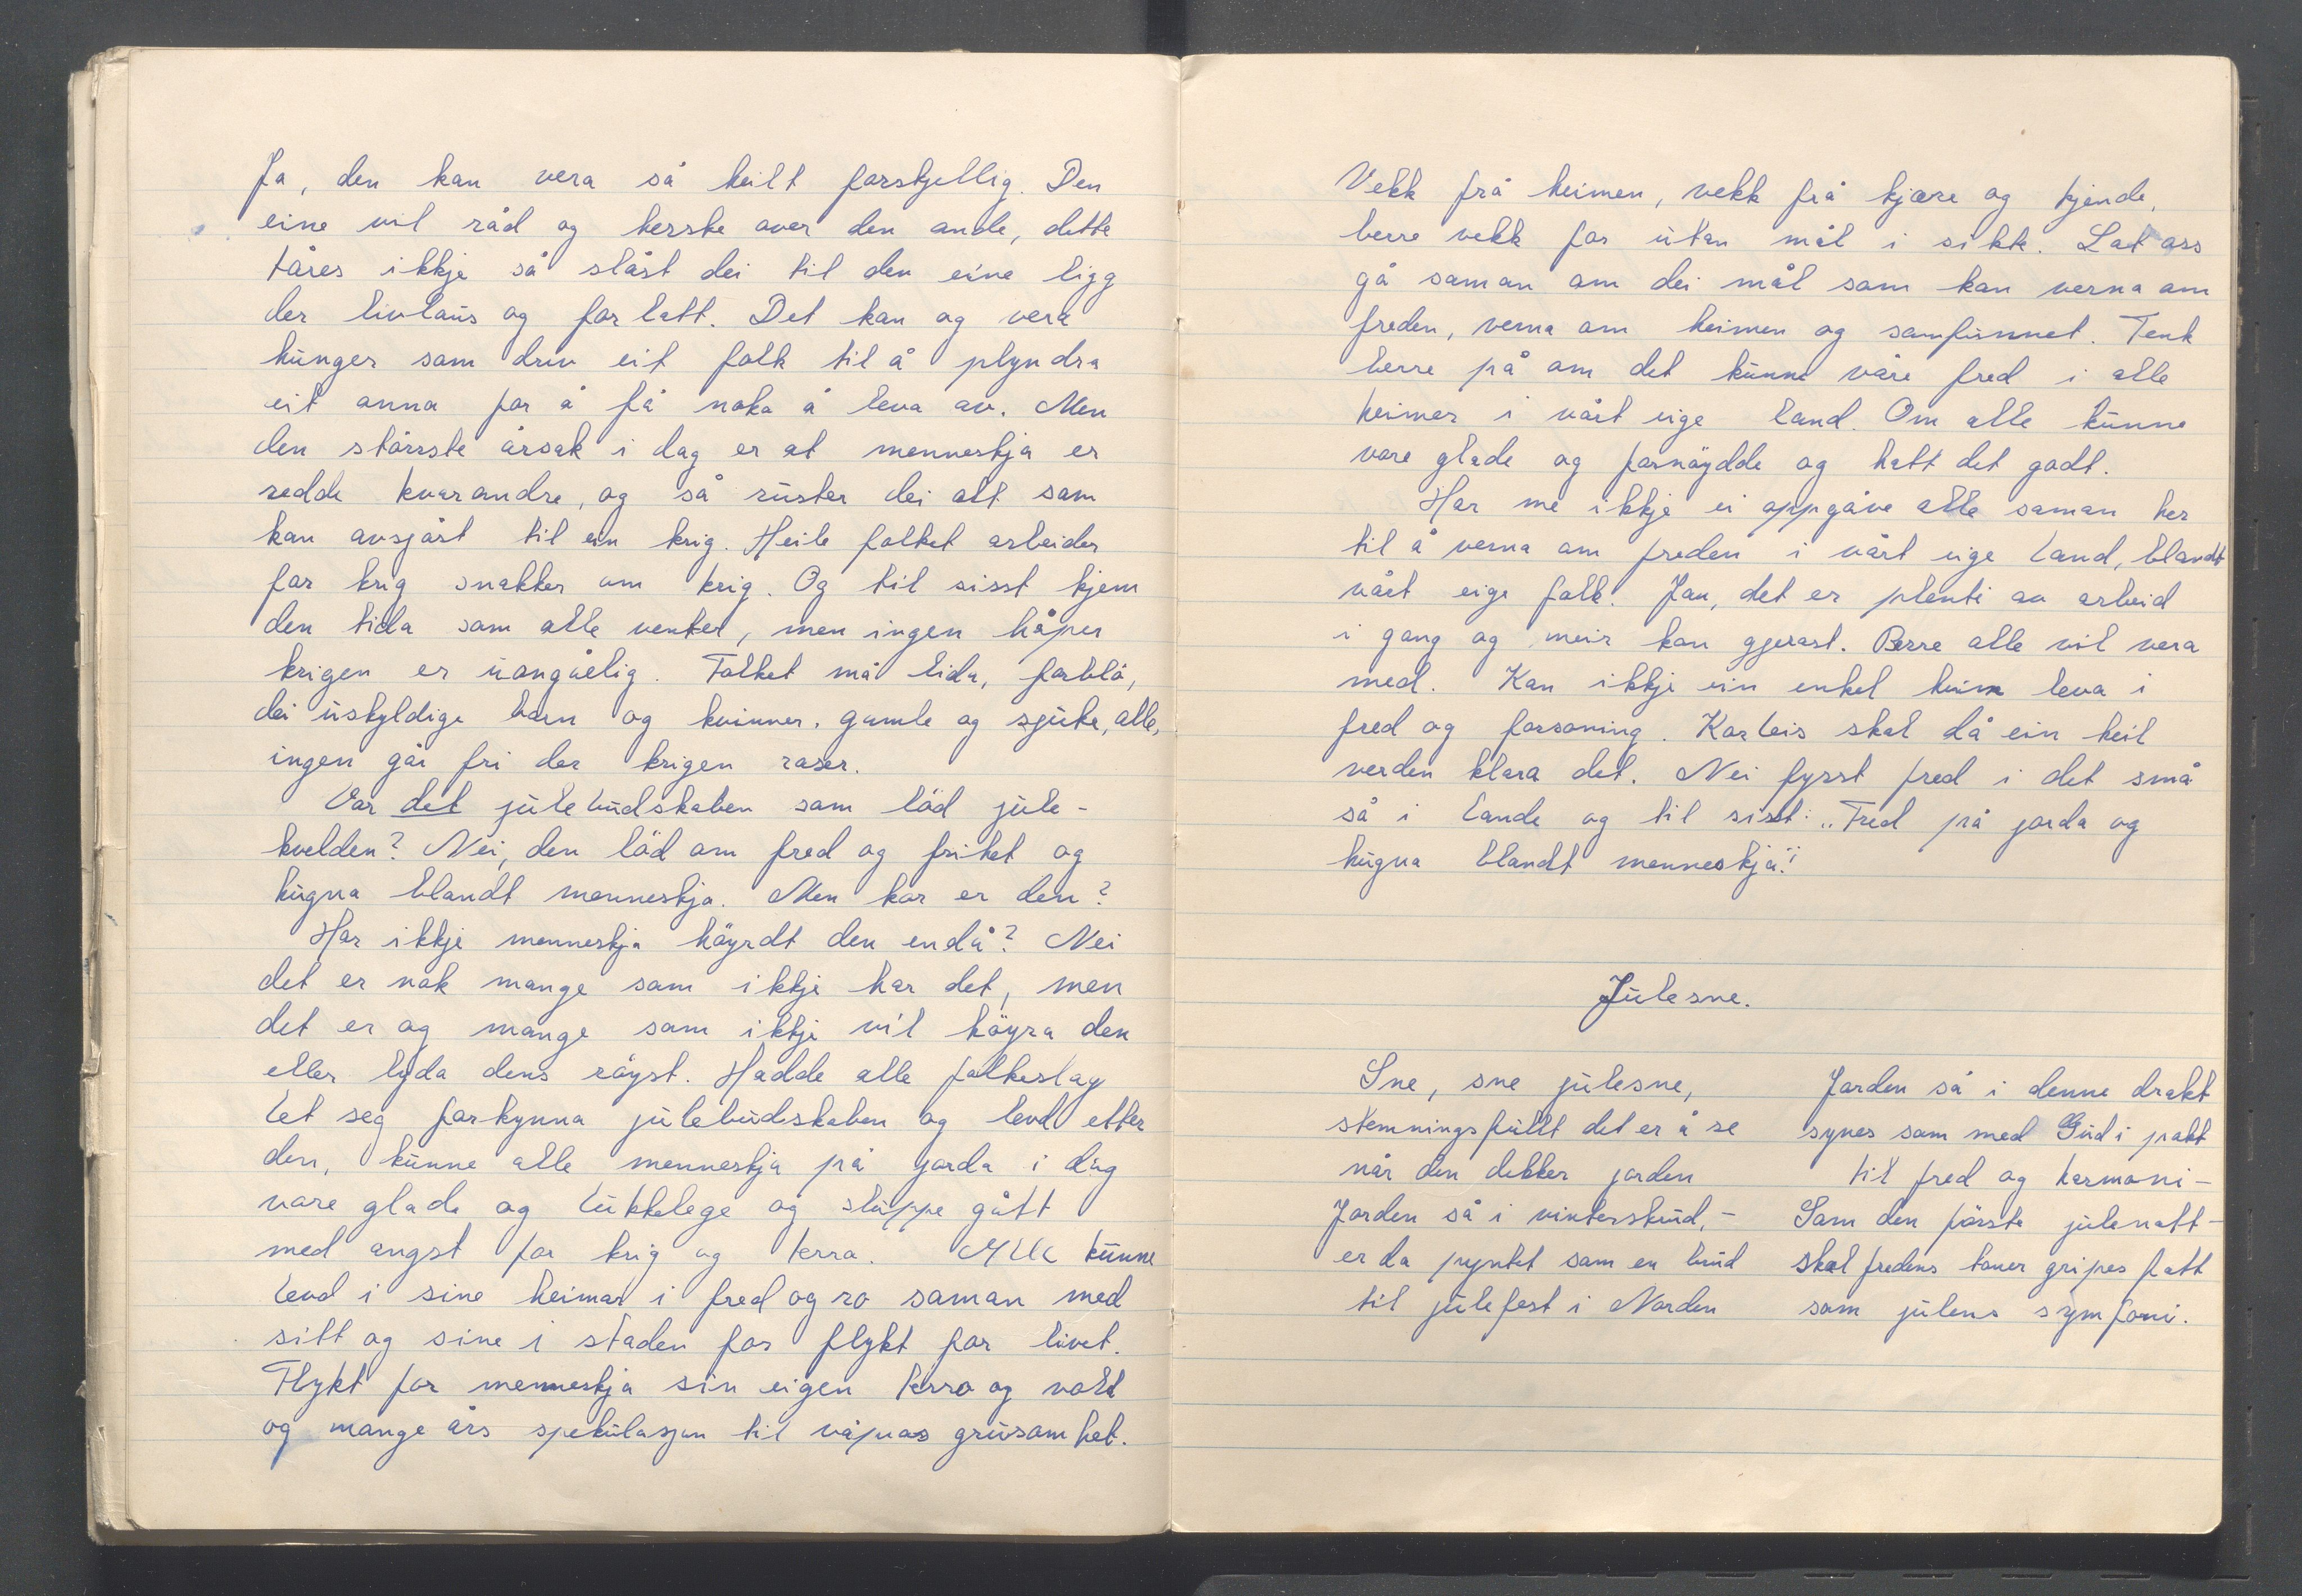 Ja, den kan vera så heilt forskjellig. Den
eine vil råd og herske over den andle, dette
tåres ikkje så slåst dei til den eine ligg
der livlaus og forlatt. Det kan og vera
hunger som driv eit folk til å plyndra
eit anna for å få noko å leva av. Men
den störrste årsak i dag er at menneskja er
redde kvarandre, og så ruster dei alt som
kan avsjåst til ein krig. Heile folket arbeider
for krig snakker om krig. Og til sisst kjem
den tida som alle venter, men ingen håper
krigen er uongåelig. Folket må lida, forblö,
dei uskyldige barn og kvinner. gamle og sjuke, alle,
ingen går fri der krigen raser.
Var det julebudskaben som löd jule-
kvelden? Nei, den löd om fred og frihet og
hugna blandt menneskja. Men kor er den?
Har ikkje menneskja höyrdt den endå? Nei
det er nok mange som ikkje har det, men
det er og mange som ikkje vil höyra den
eller lyda dens röyst. Hadde alle folkeslag
let seg forkynna julebudskaben og levd etter
den, kunne alle menneskja på jorda i dag
vare glade og lukkelege og sluppe gått
med angst for krig og terro. Alle kunne
levd i sine heimar i fred og ro saman med
sitt og sine i staden for flykt for livet.
Flykt for menneskja sin eigen terro og vold
og mange års spekulasjon til våpnas grusomhet.
Vekk frå heimen, vekk frå kjære og kjende,
berre vekk for utan mål i sikk. Lat oss
gå saman om dei mål som kan verna om
freden, verna om heimen og samfunnet. Tenk
berre på om det kunne våre fred i alle
heimer i vårt eige land. Om alle kunne
vore glade og fornöydde og hatt det godt.
Har me ikkje ei oppgåve alle saman her
til å verna om freden i vårt eige land, blandt
vårt eige folk. Jau, det er plenti av arbeid
i gang og meir kan gjerast. Berre alle vil vera
med. Kan ikkje ein enkel heim leva i
fred og forsoning. Korleis skal då ein heil
verden klara det. Nei fysst fred i det små
så i lande og til sisst: "Fred på jorda og
hugna blandt menneskja"!
Julesne.
Sne, sne julesne,
stemningsfullt det er å se
når den dekker jorden
Jorden så i vinterskud, -
er da pyntet som en brud
til julefest i Norden
Jorden så i denne drakt
synes som med Gud i pakt
til fred og harmoni -
Som den förste julenatt -
skal fredens toner gripes fatt
som julens symfoni.